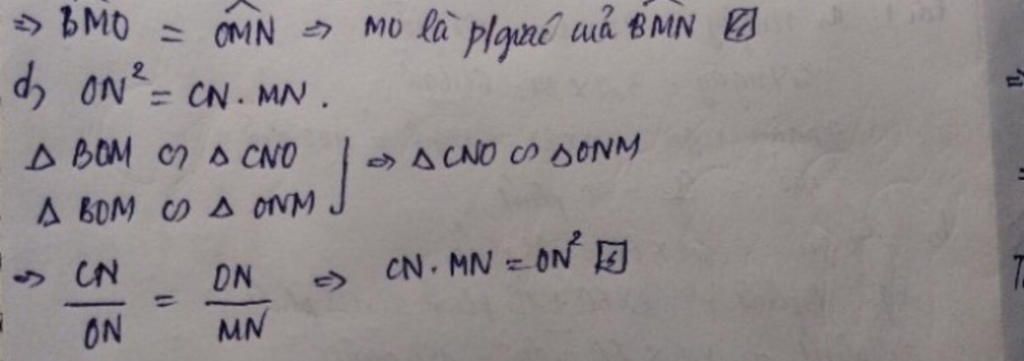 ⇒ BM̂O = OM̂N ⇒ MO là p/giác của BM̂N
d) ON² = CN . MN .
Δ BOM ∽ Δ CNO
Δ BOM ∽ Δ ONM } ⇒ Δ CNO ∽ Δ ONM
⇒ CN/ON = ON/MN ⇒ CN . MN = ON²